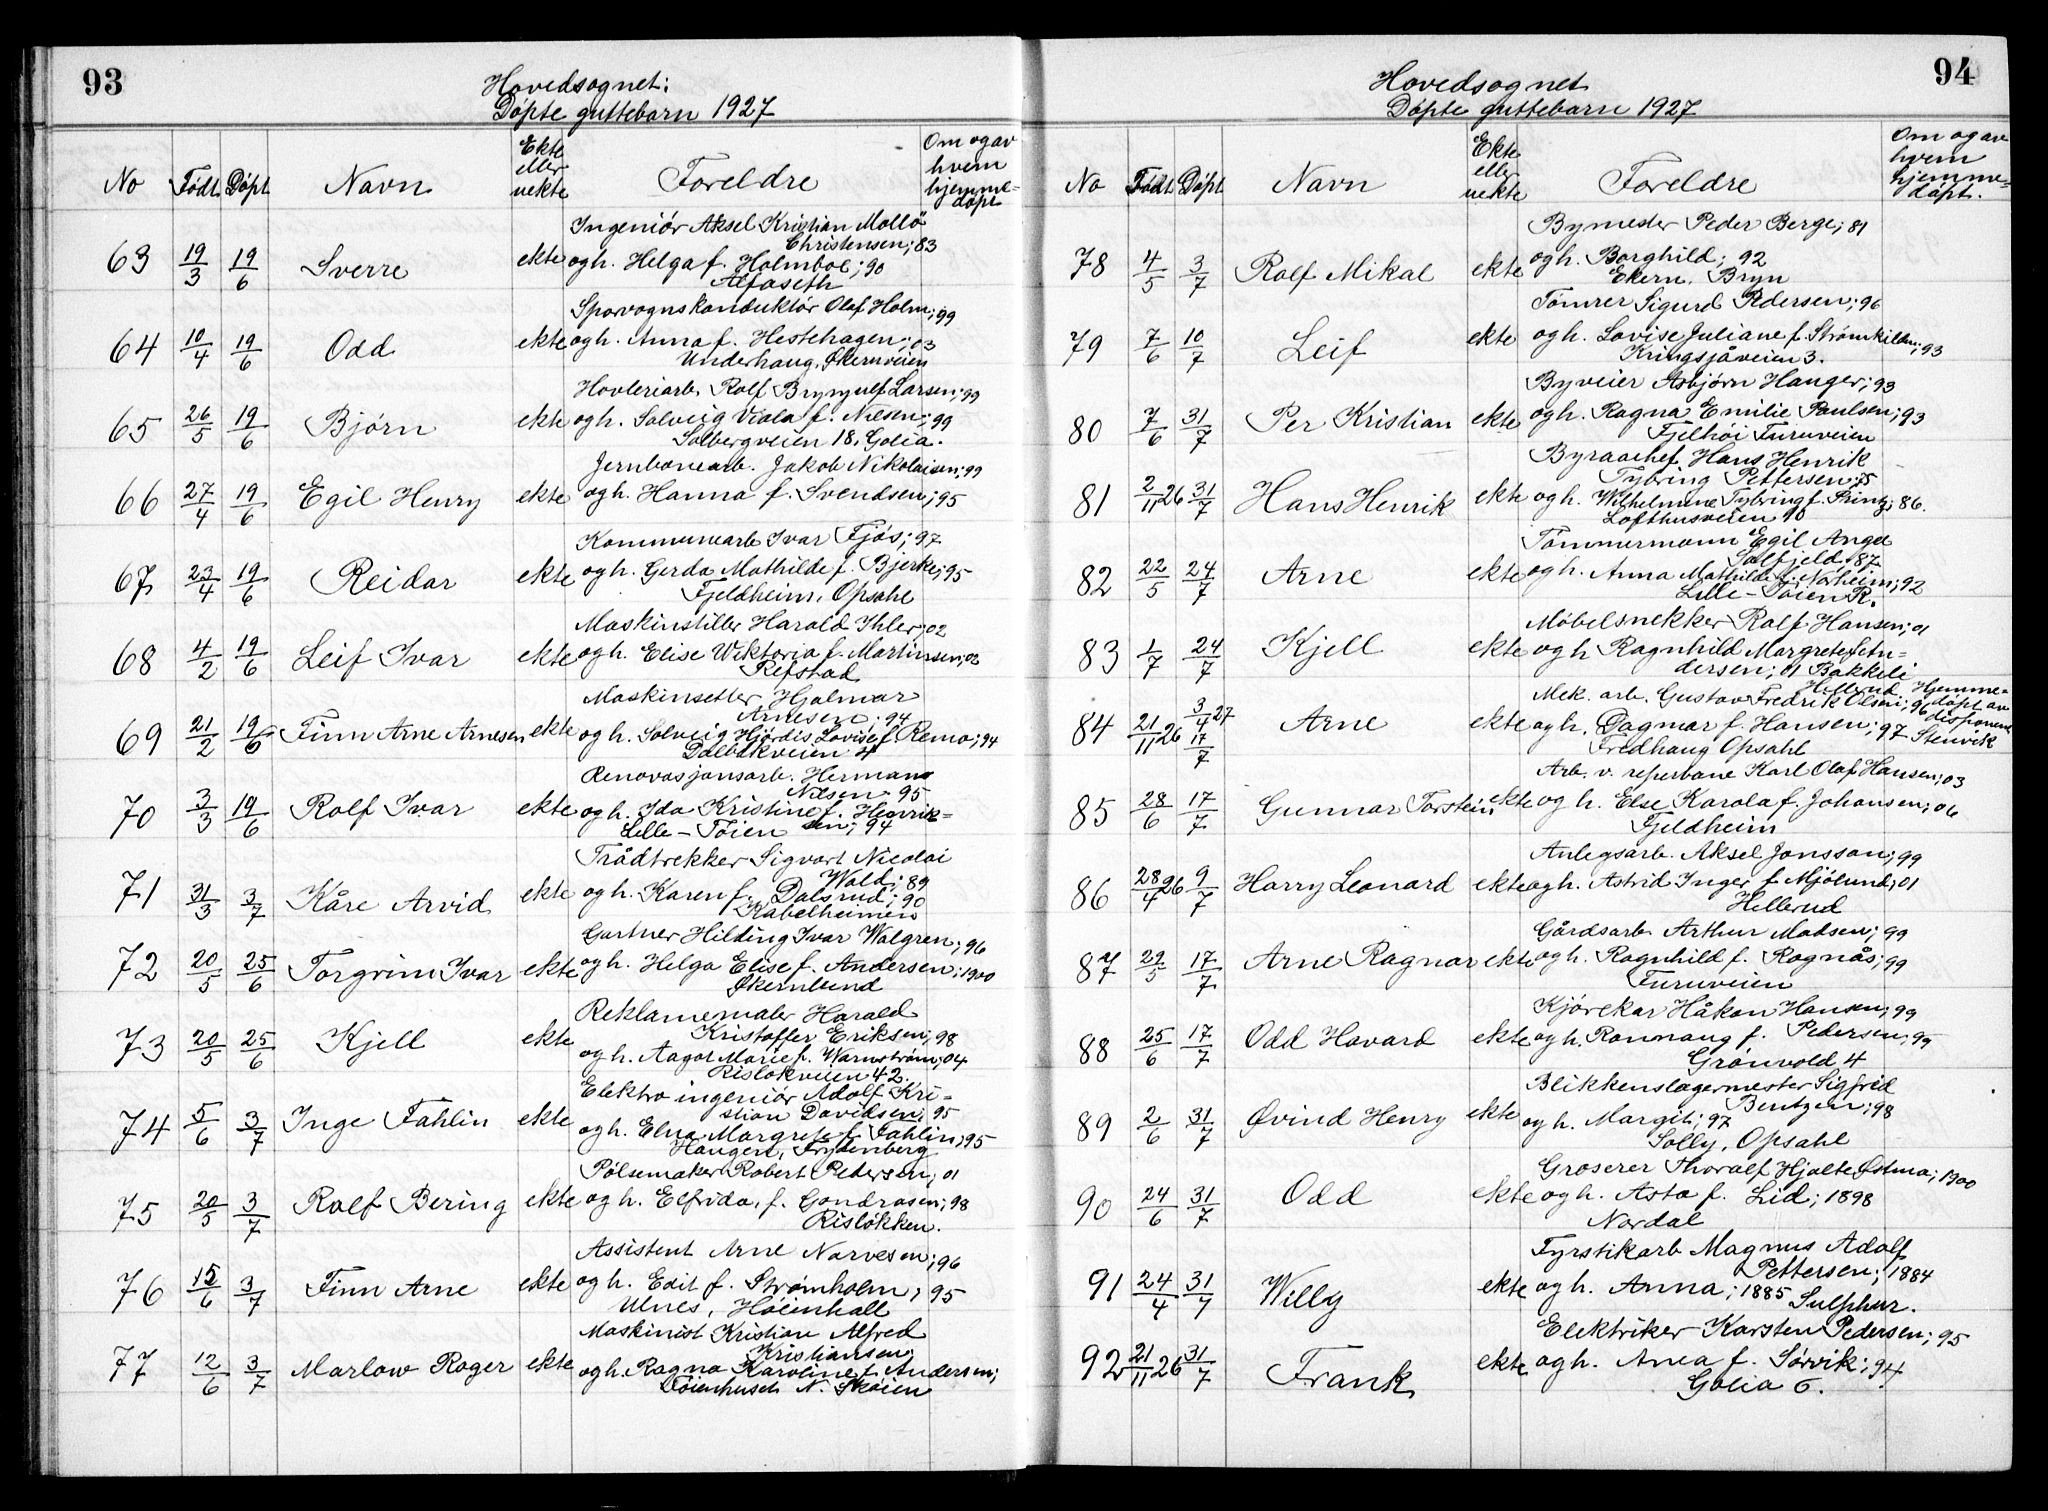 93
Hovedsognet:
Døpte guttebarn 1927
No Født Døpt Navn Ekte eller uekte Foreldre Om og av hvem hjemme=døpt
Ingeniør Aksel Kristian Mollø
Christensen; 83
63 19/3 19/6 Sverre ekte og h. Helga f. Holmboe; 90
Alfaseth
Sporvognskonduktør Olaf Holm; 99
64 10/4 19/6 Odd ekte og h. Anna f. Hestehagen; 03
Underhaug, Økernveien
Hovleriarb. Rolf Brynjulf Larsen; 99
65 26/5 19/6 Bjørn ekte og h. Solveig Viola f. Nilsen; 99
Solbergveien 18, Golia.
Jernbanearb. Jakob Nikolaisen; 99
66 27/4 19/6 Egil Henry ekte og h. Hanna f. Svendsen; 95
Kommunearb Ivar Fjøs; 97
67 23/4 19/6 Reidar ekte og h. Gerda Mathilde f. Bjerke; 95
Fjeldheim, Opsahl
Maskinstiller Harald Ihler; 02
68 4/2 19/6 Leif Ivar ekte og h. Elise Wiktoria f. Martinsen; 02
Refstad
Maskinsetter Hjalmar
Arnesen; 94
69 21/2 19/6 Finn Arne Arnesen ekte og h. Solveig Hjørdis Lovise f. Remo; 94
Dalbakveien 4
Renovasjonsarb. Herman
Nilsen 95
70 3/3 19/6 Rolf Ivar ekte og h. Ida Kristine f. Henrik=
Lille-Tøien sen; 94
Trådtrekker Sigvart Nicolai
Wold; 89
71 31/3 3/7 Kåre Arvid ekte og h. Karen f. Dalsrud; 90
Kabelheimen
Gartner Hilding Ivar Walgren; 96
72 20/5 25/6 Torgrim Ivar ekte og h. Helga Elise f. Andersen; 1900
Økernlund
Reklamemaler Harald
Kristoffer Eriksen; 98
73 20/5 25/6 Kjell ekte og h. Aagot Marie f. Warnstrøm; 04
Risløkveien 42.
Elektro ingeniør Adolf Kri-
stian Davidsen; 95
74 5/6 3/7 Inge Fahlin ekte og h. Elna Margrete f. Fahlin; 95
Haugen, Frydenberg
Pølsemaker Robert Pedersen; 01
75 20/5 3/7 Rolf Bering ekte og h. Elfrida, f. Gondrosen; 98
Risløkken.
Assistent Arne Narvesen; 96
76 15/6 3/7 Finn Arne ekte og h. Edit f. Strømholm; 95
Ulnes, Høienhall
Maskinist Kristian Alfred
Kristiansen;
77 12/6 3/7 Marlow Roger ekte og h. Ragna Karoline f. Andersen;
Tøienhuset N. Skøien
94
Hovedsognet
Døpte guttebarn 1927
No Født Døpt Navn Ekte eller uekte Foreldre Om og av hvem hjemme=døpt.
Bymester Peder Berge; 81
78 4/5 3/7 Rolf Mikal ekte og h. Borghild; 92
Ekern, Bryn
Tømrer Sigurd Pedersen; 96
79 7/6 10/7 Leif ekte og h. Lovise Juliane f. Strømkilden; 93
Kringsjåveien 3.
Byveier Asbjørn Hauger; 93
80 7/6 31/7 Per Kristian ekte og h. Ragna Emilie Paulsen; 93
Fjelhøi Furuveien
Byraachef Hans Henrik
Tybring Pettersen; 75
81 2/11 26 31/7 Hans Henrik ekte og h. Wilhelmine Tybring f. Printz; 86.
Lofthusveien 10
Tømmermann Egil Angel
Solfjeld 87
82 22/5 24/7 Arne ekte og h. Anna Mathilde f. Norheim; 92
Lille-Tøien K.
Møbelsnekker Rolf Hansen; 01
83 1/7 24/7 Kjell ekte og h Ragnhild Margrete f. An-
dersen; 01 Bakkeli
Hellerud
Mek. arb. Gustav Fredrik Olsen; 96 Hjemme=døpt av disponent Stenvik
84 21/11 26 3/4 27 17/7 Arne ekte og h. Dagmar f. Hansen; 97
Fredhaug Opsahl
Arb. v. reperbane Karl Olaf Hansen; 03
85 28/6 17/7 Gunnar Torstein ekte og h. Else Karola f. Johansen; 06
Fjeldheim
Anlegsarb. Aksel Jonsson; 99
86 28/4 26 9/7 Harry Leonard ekte og h. Astrid Inger f. Mjølund; 01
Hellerud
Gårdsarb. Arthur Madsen; 99
87 29/5 17/7 Arne Ragnar ekte og h. Ragnhild f. Rognås; 99
Furuveien
Kjørekar Håkon Hansen; 99
88 25/6 17/7 Odd Havard ekte og h. Ronnaug f. Pedersen; 99
Grønvold 4
Blikkenslagermester Sigfrid
Bentzen; 98
89 2/6 31/7 Øvind Henry ekte og h. Margit; 97
Solly, Opsahl
Groserer Thoralf Hjalte Østmo; 1900
90 24/6 31/7 Odd ekte og h. Asta f. Lid; 1898
Nordal
Fyrstikarb Magnus Adolf
Pettersen; 1884
91 24/4 31/7 Willy ekte og h. Anna; 1885 Sulphur.
Elektriker Karsten Pedersen; 95
92 21/11 26 31/7 Frank ekte og h. Anea f. Sørvik; 94
Golia 6.